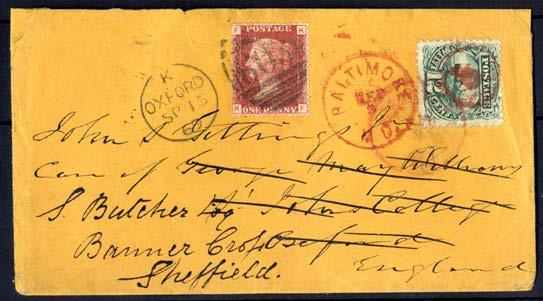 POSTAGE
F K
K F
ONE PENNY
K
OXFORD
SP 15
BALTIMORE
SEP
POSTAGE
John S Gittings Jr
Care of George May Esq
S. Butcher Esq St John's College
Banner Cross Oxford
Sheffield. England